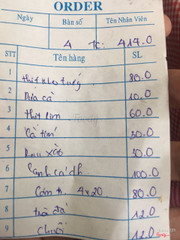 ORDER
Ngày Bàn số Tên Nhân Viên
4 tc: 414.0
STT Tên hàng SL
1 thịt kho tướng 80.0
2 Dưa cà 10.0
3 thịt rim 60.0
4 cà tím 30.0
5 Rau xào 30.0
6 Canh cá 100.0
7 Cơm 4x20 80.0
8 trà đá 12.0
9 chuối 12.0